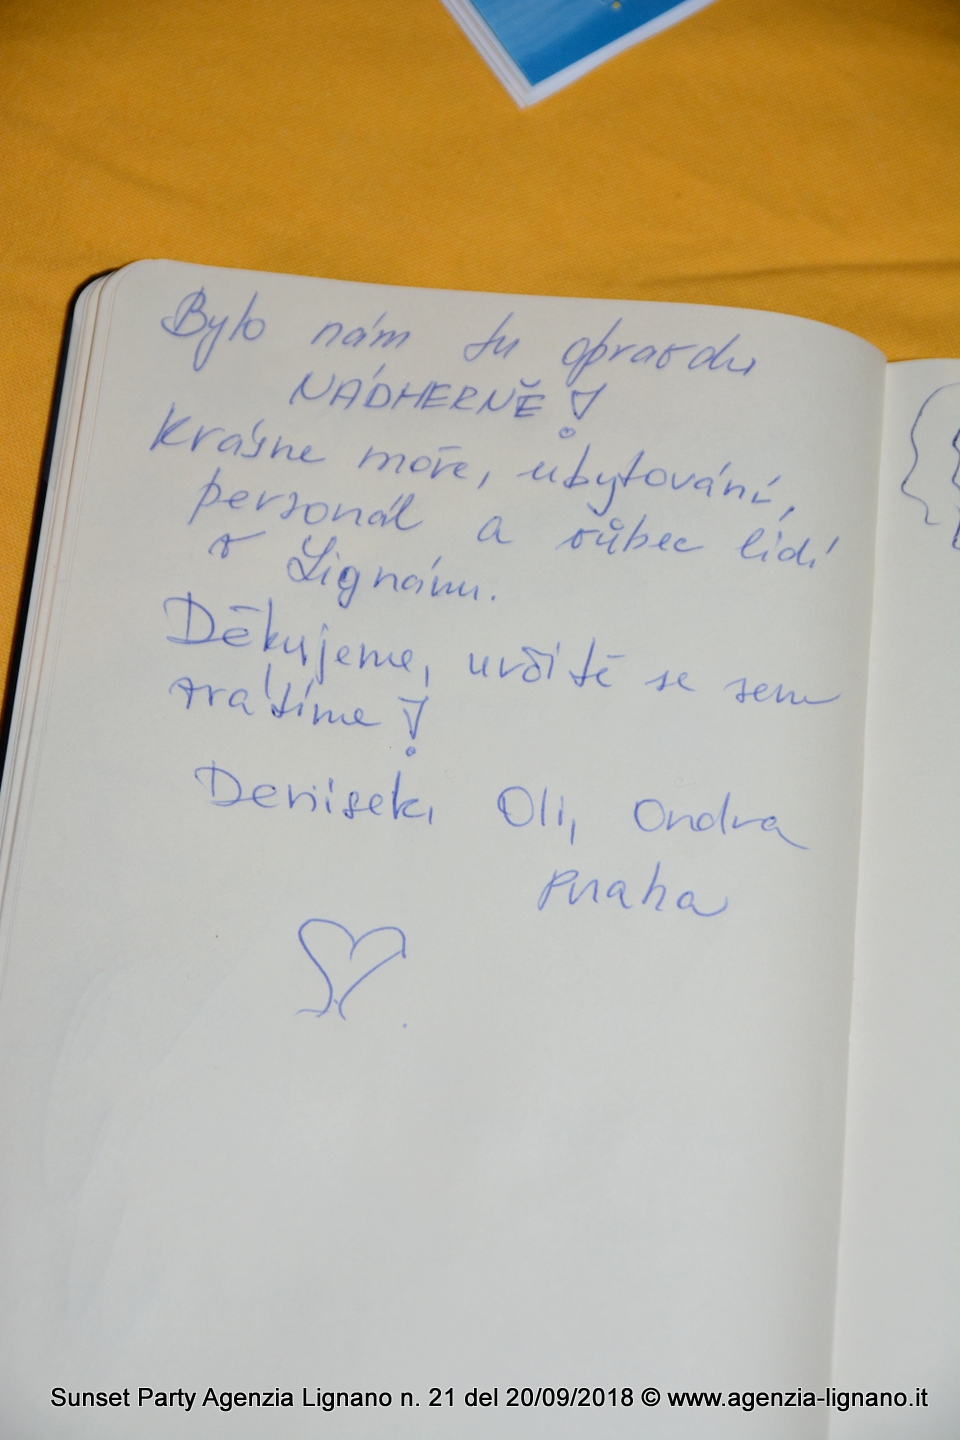 Bylo nám tu opravdu
NÁDHERNĚ!
Krásne moře, ubytování,
personál a vůbec lidí
v Lignánu.
Děkujeme, určitě se sem
vrátíme!
Denisek, Oli, Ondra
Praha
Sunset Party Agenzia Lignano n. 21 del 20/09/2018 © www.agenzia-lignano.it